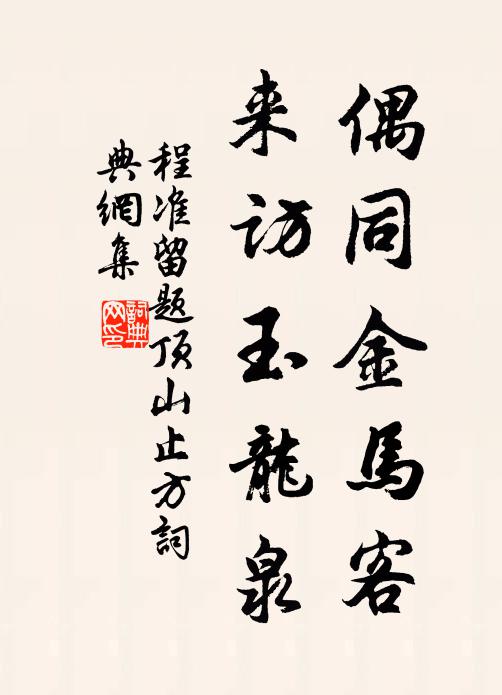 偶同金馬客
来訪玉龍泉
程准留題顶山止方詞
典網集
詞典
网印